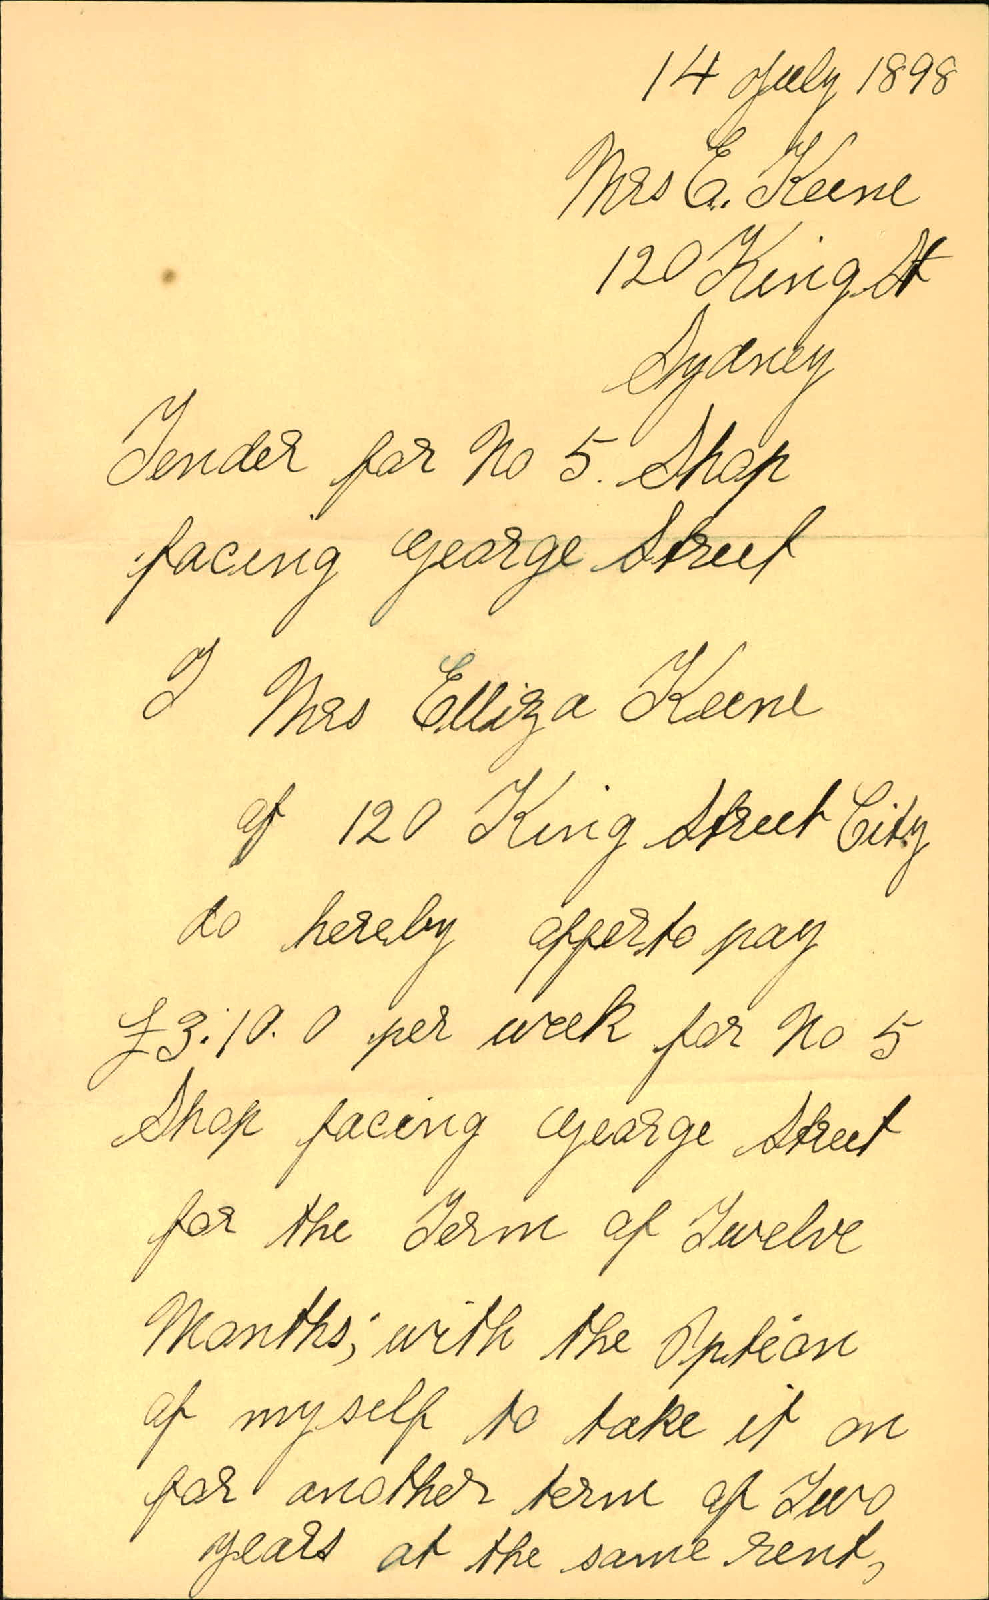 14 July 1898
Mrs E. Keene
120 King St
Sydney
Tender for No 5. Shop
facing George Street
I Mrs Elliza Keene
of 120 King Street City
do hereby offer to pay
£3:10.0 per week for No 5
Shop facing George Street
for the Term of Twelve
Months; with the Option
of myself to take it on
for another term of Two
years at the same rent,